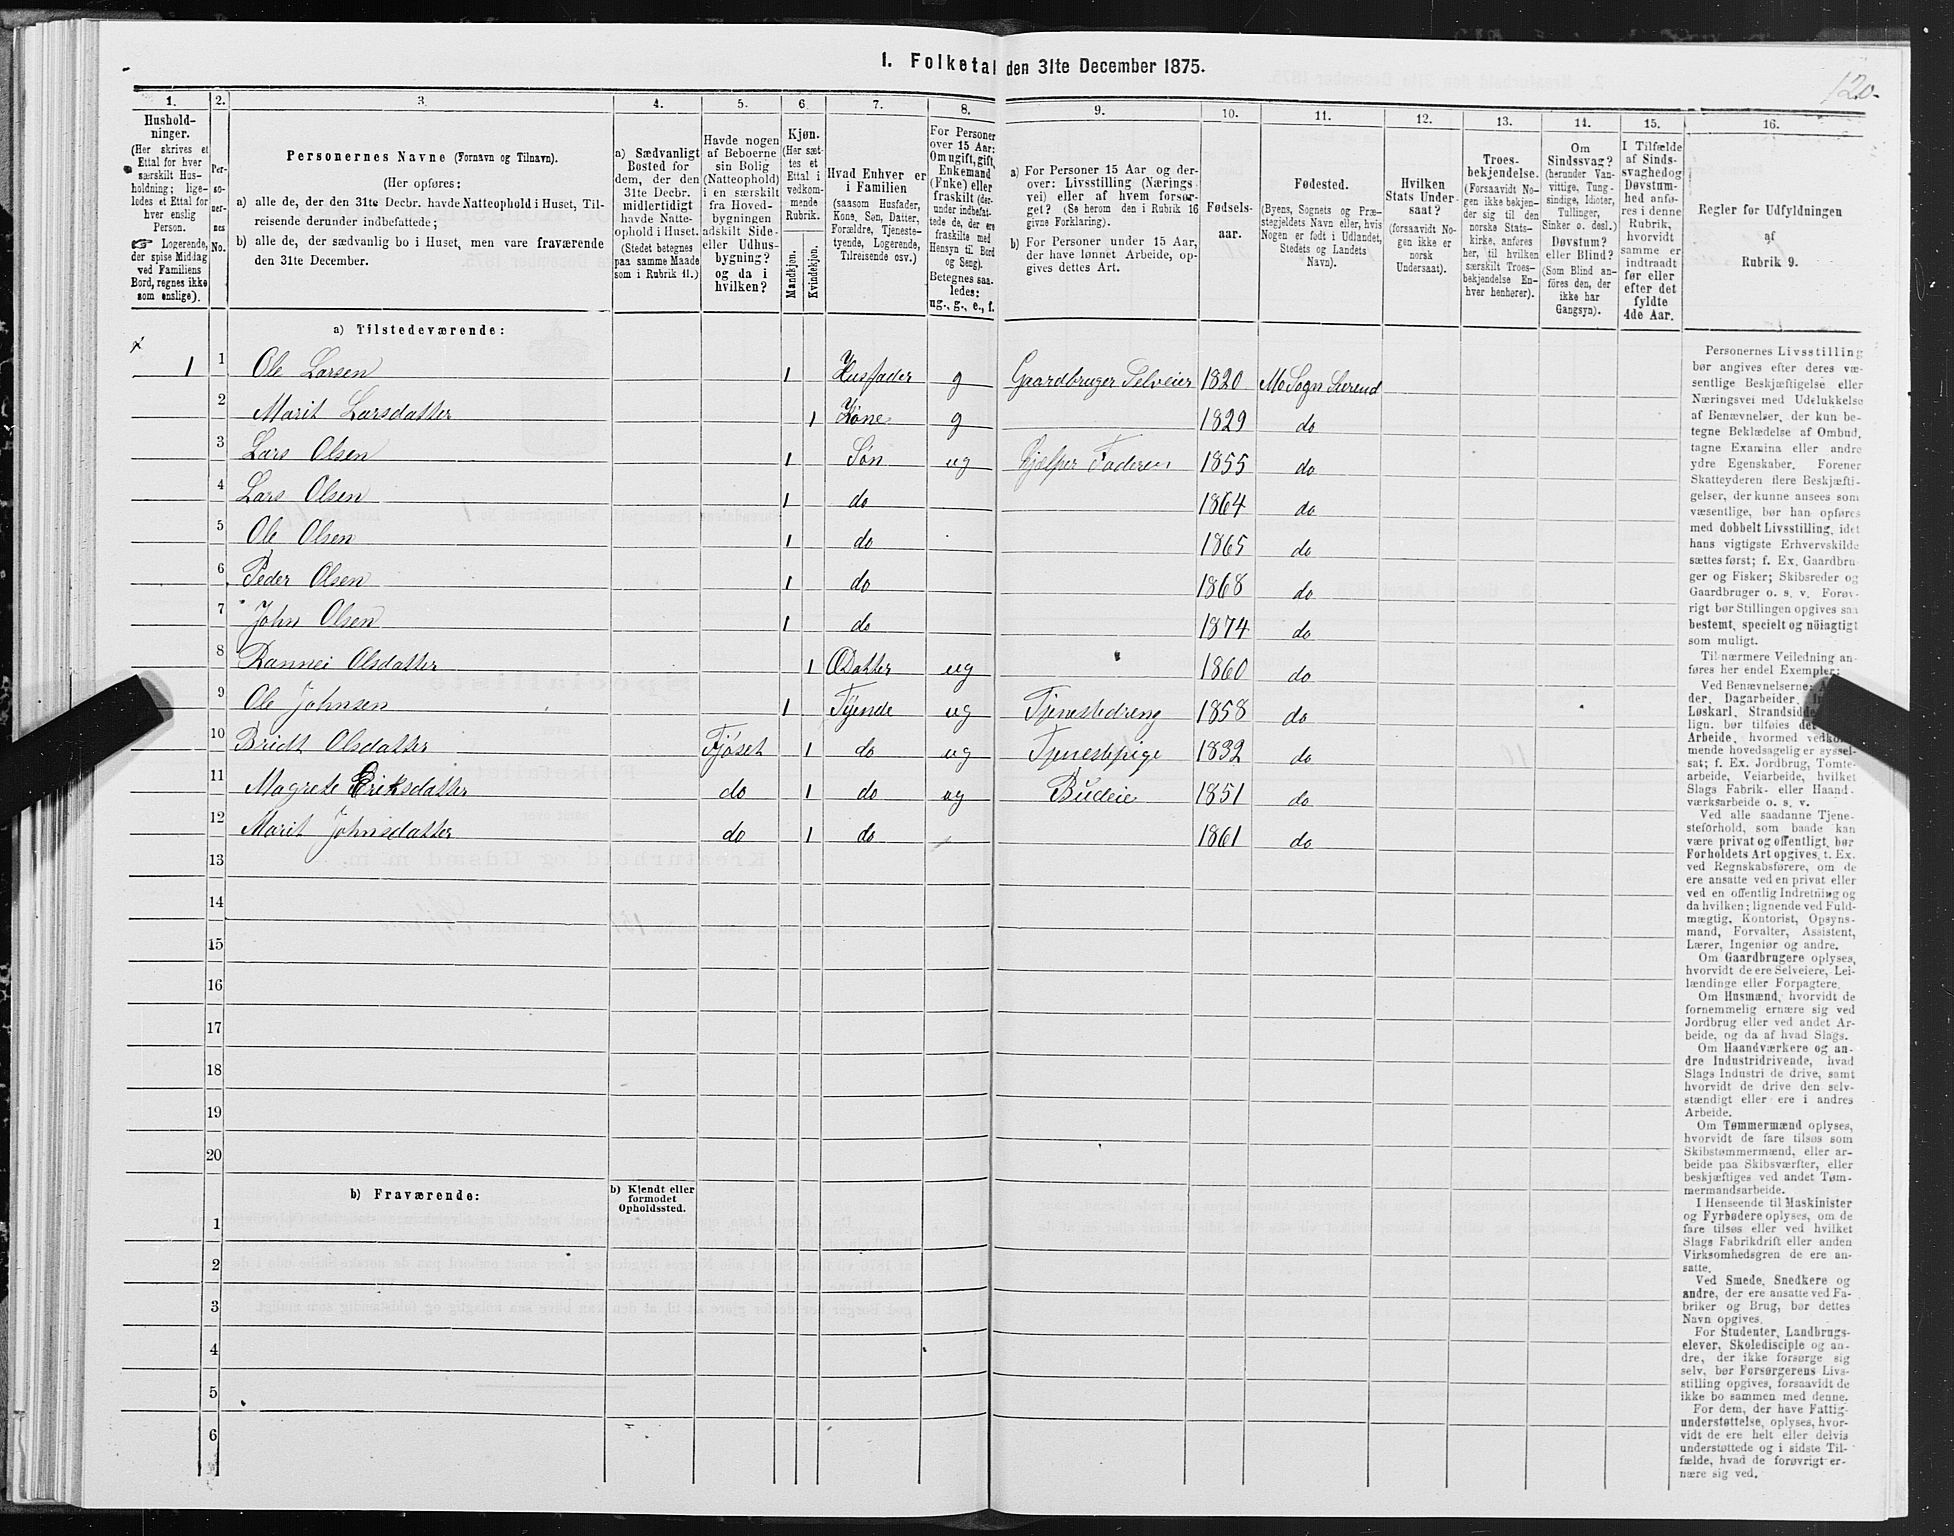 120.
1. Folketal den 31te December 1875.
1. 2. 3. 4. 5. 6. 7. 8. 9. 10. 11. 12. 13. 14. 15. 16.
Hushold-
ninger.
(Her skrives et
Ettal for hver
særskilt Hus-
holdning; lige-
ledes et Ettal for
hver enslig
Person.
☞ Logerende,
der spise Middag
ved Familiens
Bord, regnes ikke
som enslige).
Per-
so-
ner-
nes
No.
Personernes Navne (Fornavn og Tilnavn).
(Her opføres:
a) alle de, der den 31te Decbr. havde Natteophold i Huset, Til-
reisende derunder indbefattede;
b) alle de, der sædvanlig bo i Huset, men vare fraværende
den 31te December.
a) Sædvanligt
Bosted for
dem, der den
31te Decbr.
midlertidigt
havde Natte-
ophold i Huset.
(Stedet betegnes
paa samme Maade
som i Rubrik 11.)
Havde nogen
af Beboerne
sin Bolig
(Natteophold)
i en særskilt
fra Hoved-
bygningen
adskilt Side-
eller Udhus-
bygning?
og da i
hvilken?
Kjøn.
(Her sæt-
tes et
Ettal i
vedkom-
mende
Rubrik.
Mandkjøn.
Kvindekjøn.
Hvad Enhver er
i Familien
(saasom Husfader,
Kone, Søn, Datter,
Forældre, Tjeneste-
tyende, Logerende,
Tilreisende osv.)
For Personer
over 15 Aar:
Om ugift, gift,
Enkemand
(Enke) eller
fraskilt (der-
under indbefat-
tede de, der ere
fraskilte med
Hensyn til Bord
og Seng).
Betegnes saa-
ledes:
ug., g., e., f.
a) For Personer 15 Aar og der-
over: Livsstilling (Nærings-
vei) eller af hvem forsør-
get? (Se herom den i Rubrik 16
givne Forklaring).
b) For Personer under 15 Aar,
der have lønnet Arbeide, op-
gives dettes Art.
Fødsels-
aar.
Fødested.
(Byens, Sognets og Præ-
stegjeldets Navn eller, hvis
Nogen er født i Udlandet,
Stedets og Landets
Navn).
Hvilken
Stats Under-
saat?
(forsaavidt No-
gen ikke er
norsk
Undersaat).
Troes-
bekjendelse.
(Forsaavidt No-
gen ikke bekjen-
der sig til den
norske Stats-
kirke, anføres
her, til hvilken
særskilt Troes-
bekjendelse En-
hver henhører).
Om
Sindssvag?
(herunder Van-
vittige, Tung-
sindige, Idioter,
Tullinger,
Sinker o. desl.)
Døvstum?
eller Blind?
(Som Blind an-
føres den, der
ikke har
Gangsyn).
I Tilfælde
af Sinds-
svaghed og
Døvstum-
hed anfø-
res i denne
Rubrik,
hvorvidt
samme er
indtraadt
før eller
efter det
fyldte
4de Aar.
Regler før Udfyldningen
af
Rubrik 9.
a) Tilstedeværende:
1 1 Ole Larsen 1 Husfader g Gaardbruger Selveier 1820 Mo Sogn Surend
2 Marit Larsdatter 1 Kone g 1829 do
3 Lars Olsen 1 Søn ug Hjelper Faderen 1855 do
4 Lars Olsen 1 do 1864 do
5 Ole Olsen 1 do 1865 do
6 Peder Olsen 1 do 1868 do
7 John Olsen 1 do 1874 do
8 Rannei Olsdatter 1 Datter ug 1860 do
9 Ole Johnsen 1 Tyende ug Tjenestedreng 1858 do
10 Bridt Olsdatter Fjøset 1 do ug Tjenestepige 1832 do
11 Magrete Eriksdatter do 1 do ug Budeie 1851 do
12 Marit Johnsdatter do 1 do 1861 do
13
14
15
16
17
18
19
20
b) Fraværende:
b) Kjendt eller
formodet
Opholdssted.
1
2
3
4
5
6
Personernes Livsstilling
bør angives efter deres væ-
sentlige Beskjæftigelse eller
Næringsvei med Udelukkelse
af Benævnelser, der kun be-
tegne Beklædelse af Ombud,
tagne Examina eller andre
ydre Egenskaber. Forener
Skatteyderen flere Beskjæfti-
gelser, der kunne ansees som
væsentlige, bør han opføres
med dobbelt Livsstilling, idet
hans vigtigste Erhvervskilde
sættes først; f. Ex. Gaardbru-
ger og Fisker; Skibsreder og
Gaardbruger o. s. v. Forøv-
rigt bør Stillingen opgives saa
bestemt, specielt og nöiagtigt
som muligt.
Til nærmere Veiledning an-
føres her endel Exempler:
Ved Benævnelserne:
der, Dagarbeider,
Løskarl, Strandsidde
lign. bør tilføies det
Arbeide, hvormed vedkom-
mende hovedsagelig er syssel-
sat; f. Ex. Jordbrug, Tomte-
arbeide, Veiarbeide, hvilket
Slags Fabrik- eller Haand-
værksarbeide o. s. v.
Ved alle saadanne Tjene-
steforhold, som baade kan
være privat og offentligt, bør
Forholdets Art opgives, t. Ex.
ved Regnskabsførere, om de
ere ansatte ved en privat eller
ved en offentlig Indretning og
da hvilken; lignende ved Fuld-
mægtig, Kontorist, Opsyns-
mand, Forvalter, Assistent,
Lærer, Ingeniør og andre.
Om Gaardbrugere oplyses,
hvorvidt de ere Selveiere, Lei-
lændinge eller Forpagtere.
Om Husmænd, hvorvidt de
fornemmelig ernære sig ved
Jordbrug eller ved andet Ar-
beide, og da af hvad Slags.
Om Haandværkere og an-
dre Industridrivende, hvad
Slags Industri de drive, samt
hvorvidt de drive den selv-
stændigt eller ere i andres
Arbeide.
Om Tømmermænd oplyses,
hvorvidt de fare tilsøs som
Skibstømmermænd, eller ar-
beide paa Skibsværfter, eller
beskjæftiges ved andet Tøm-
mermandsarbeide.
I Henseende til Maskinister
og Fyrbødere oplyses, om de
fare tilsøs eller ved hvilket
Slags Fabrikdrift eller anden
Virksomhedsgren de ere an-
satte.
Ved Smede, Snedkere og
andre, der ere ansatte ved Fa-
briker og Brug, bør dettes
Navn opgives.
For Studenter, Landbrugs-
elever, Skoledisciple og an-
dre, der ikke forsørge sig
selv, bør Forsørgerens Livs-
stilling opgives, forsaavidt de
ikke bo sammen med denne.
For dem, der have Fattig-
understøttelse, oplyses, hvor-
vidt de ere helt eller delvis
understøttede og i sidste Til-
fælde, hvad de forøvrigt er-
nære sig ved.